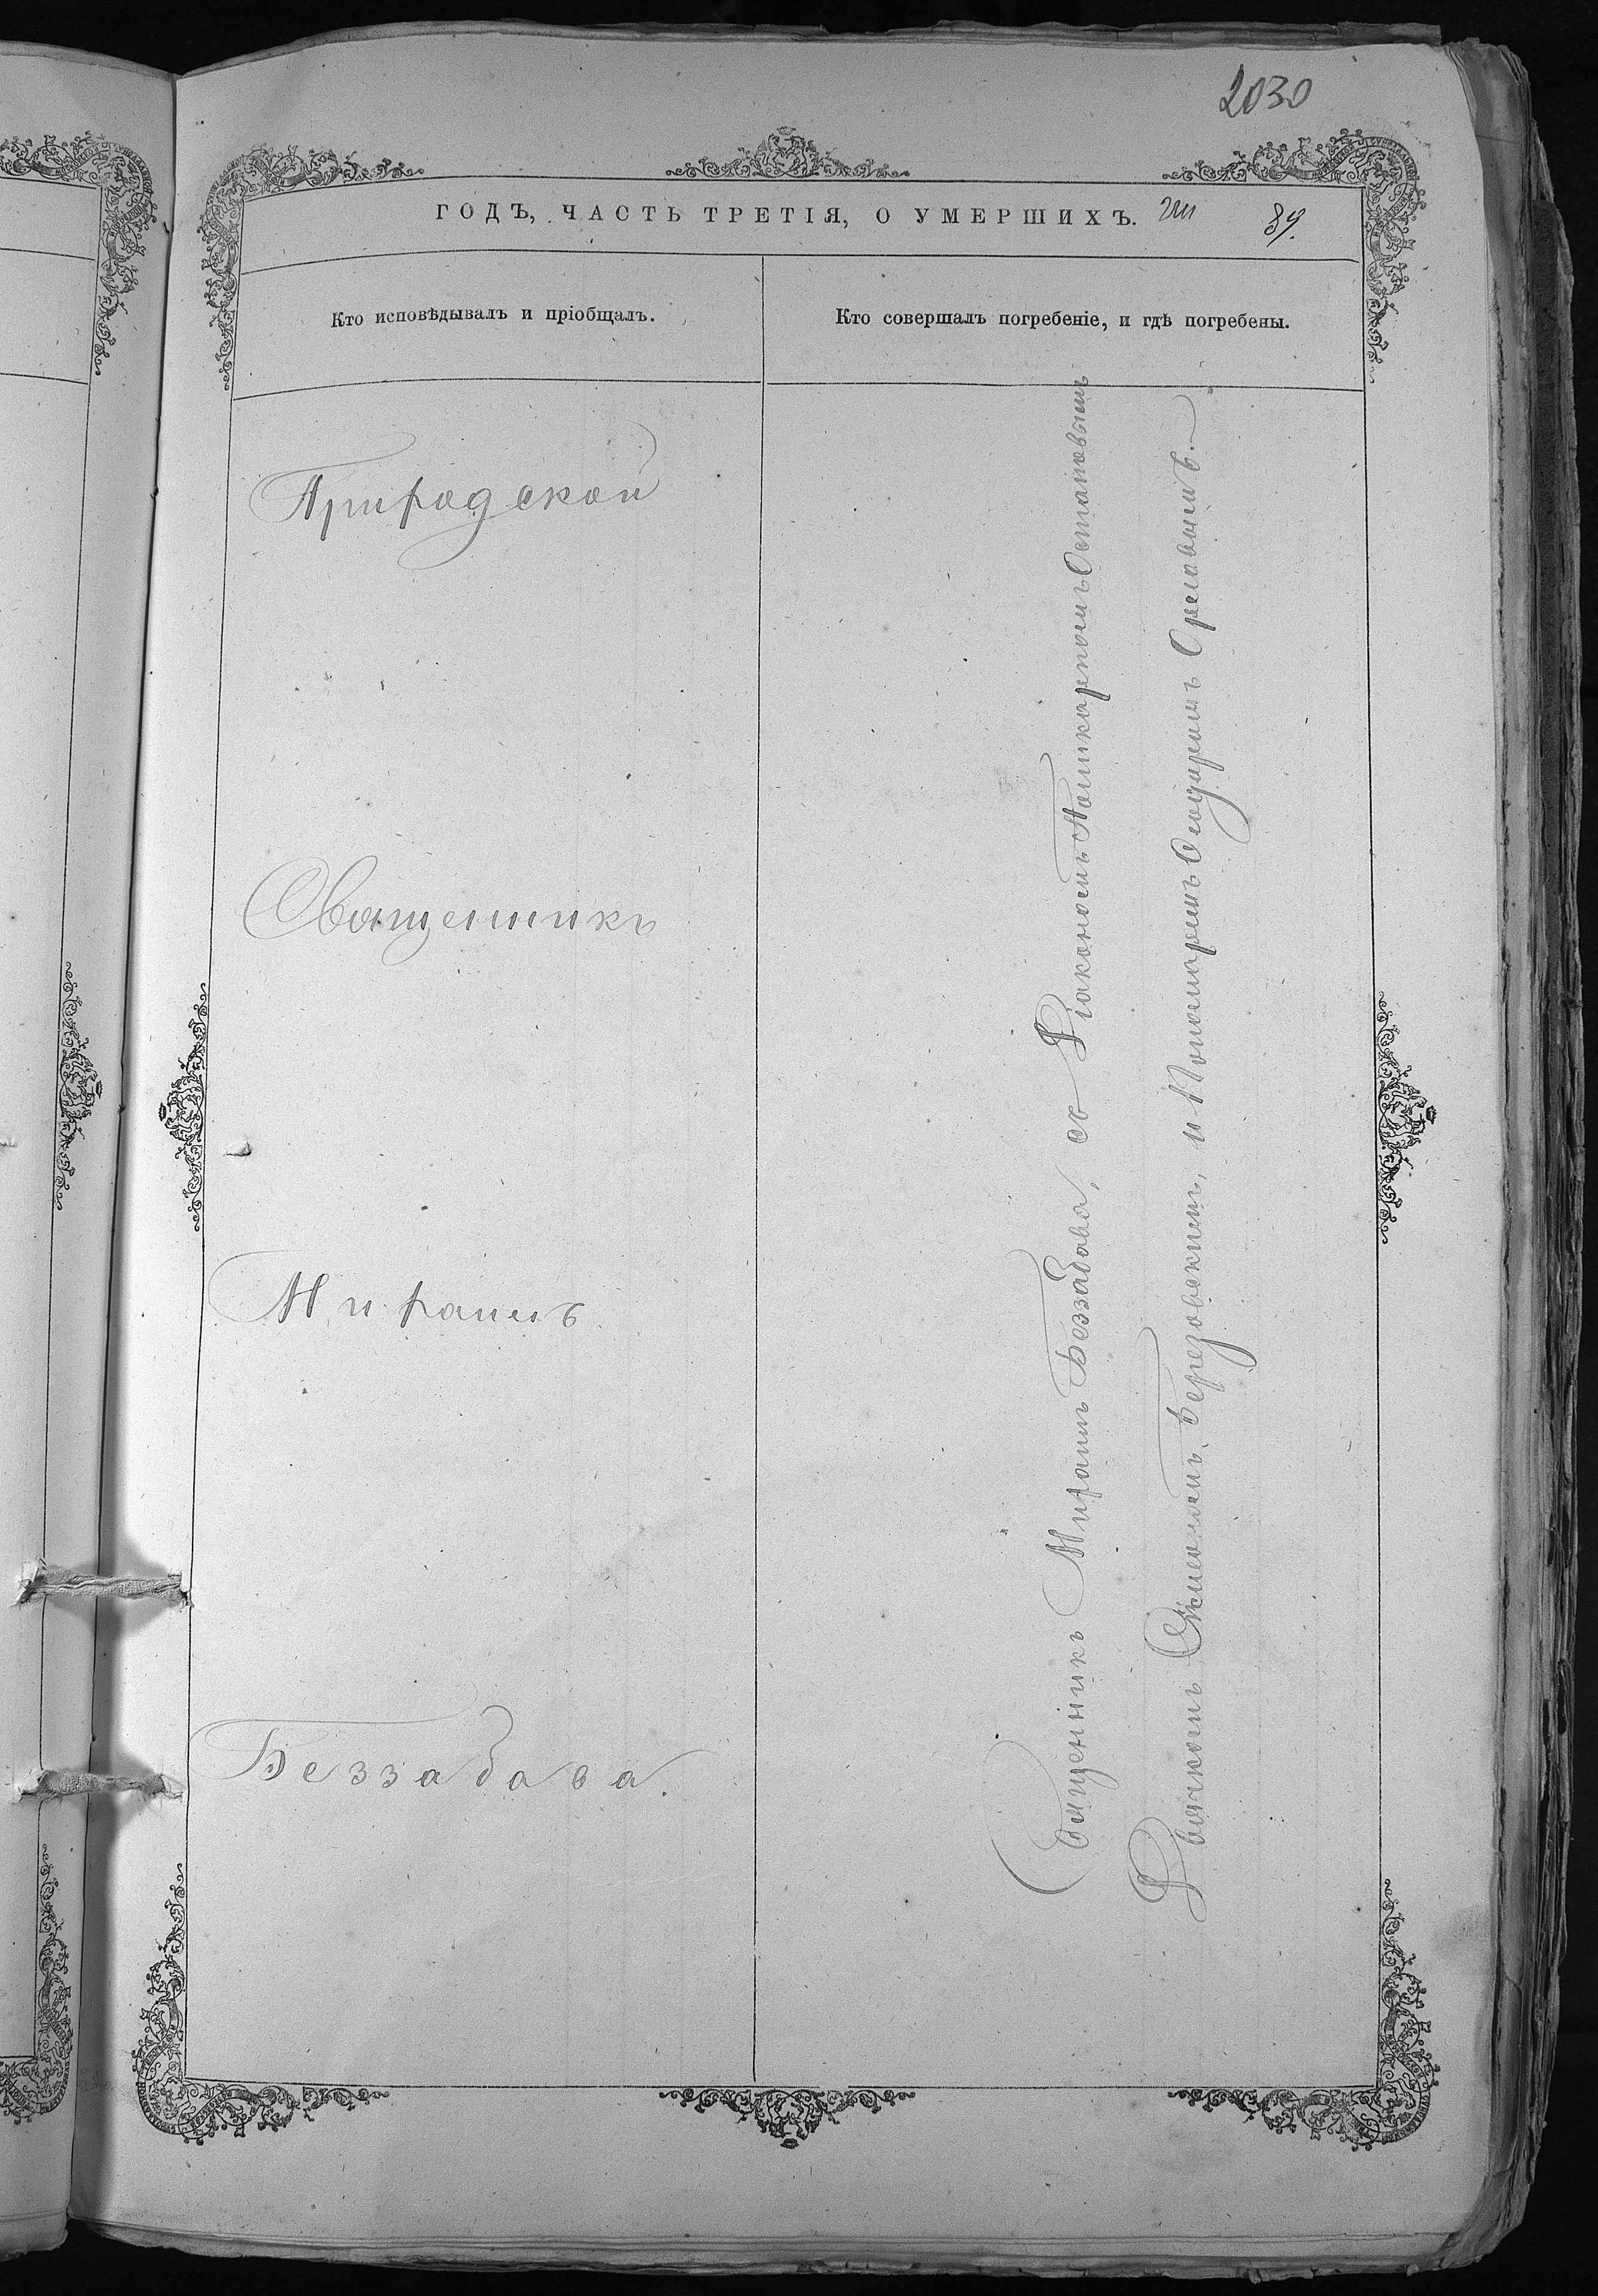 2030
ГОДЪ, ЧАСТЬ ТРЕТІЯ, О УМЕРШИХЪ.
89.
Кто исповѣдывалъ и пріобщалъ.
Кто совершалъ погребеніе, и гдѣ погребены.
Приходской
Священникъ
Миронъ
Беззабава.
Священникъ Миронъ Беззабава, съ Діакономъ Поликарпомъ Остаповымъ
Дьячкомъ Симеономъ Березовскимъ, и Пономаремъ